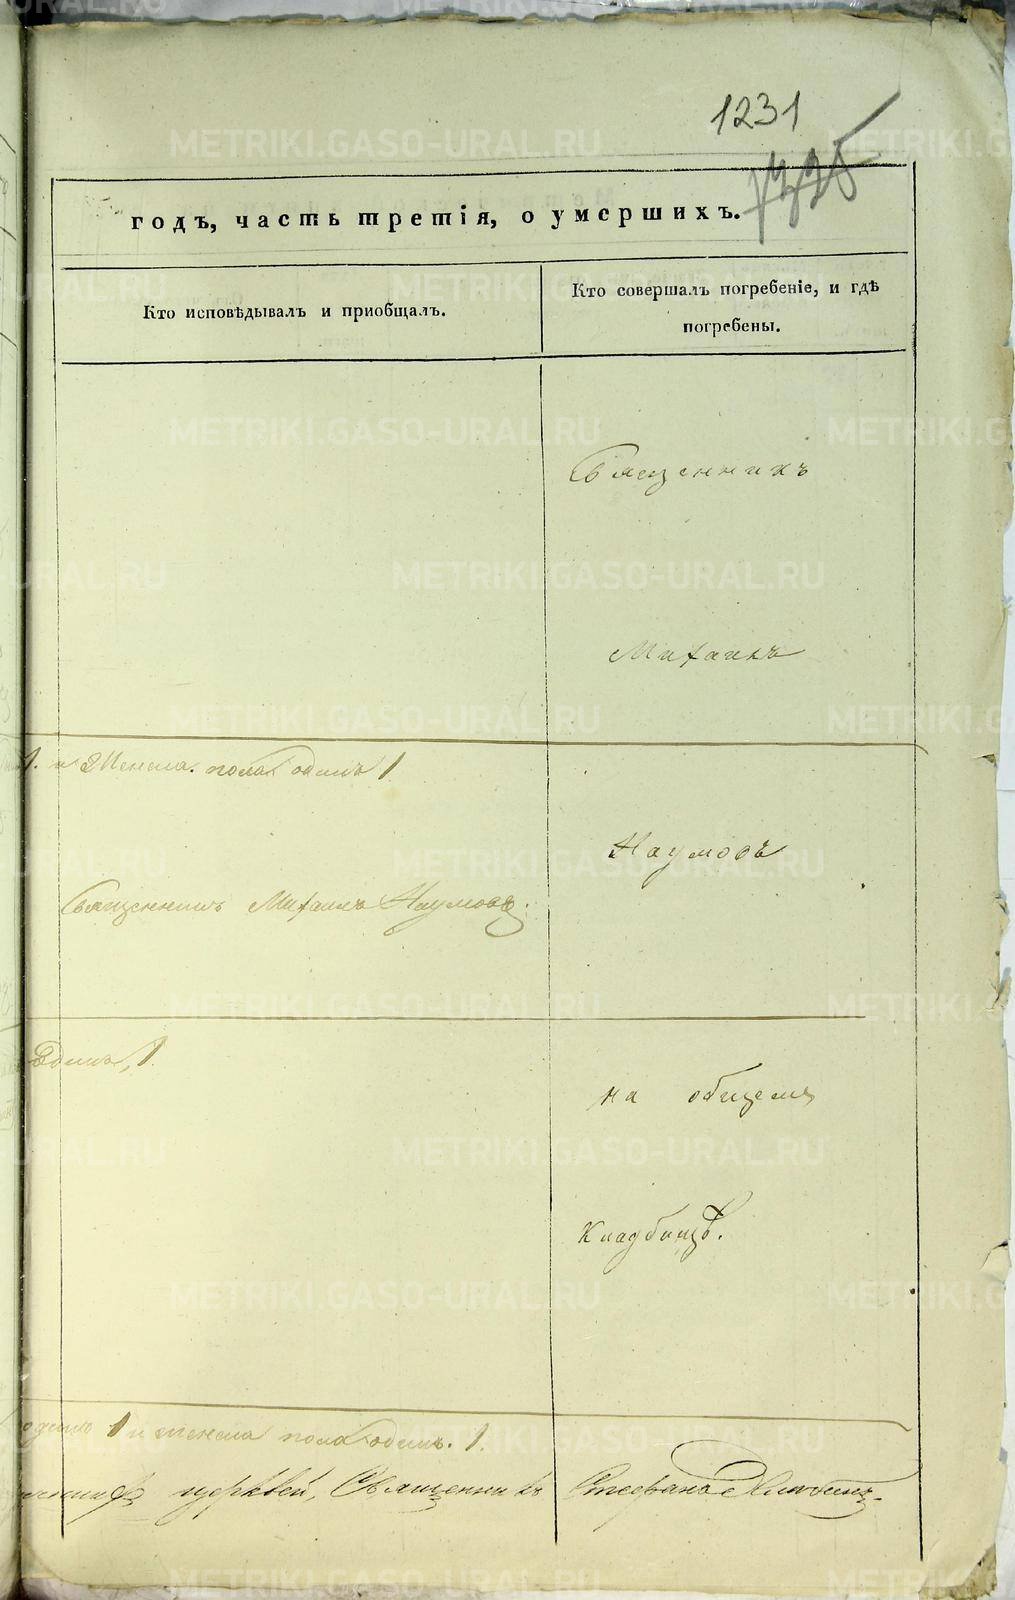 1231
годъ, часть третія, о умершихъ.
Кто исповѣдывалъ и пріобщалъ.
Кто совершалъ погребеніе, и гдѣ
погребены.
Священникъ
Михаилъ
1. и Женска. пола одинъ 1
Наумовъ
Священникъ Михаилъ Наумовъ.
Одинъ, 1.
на общемъ
кладбищѣ.
одинъ 1 и женска пола одинъ. 1.
церквей, Священникъ Стефанъ
METRIKI.GASO-URAL.RU